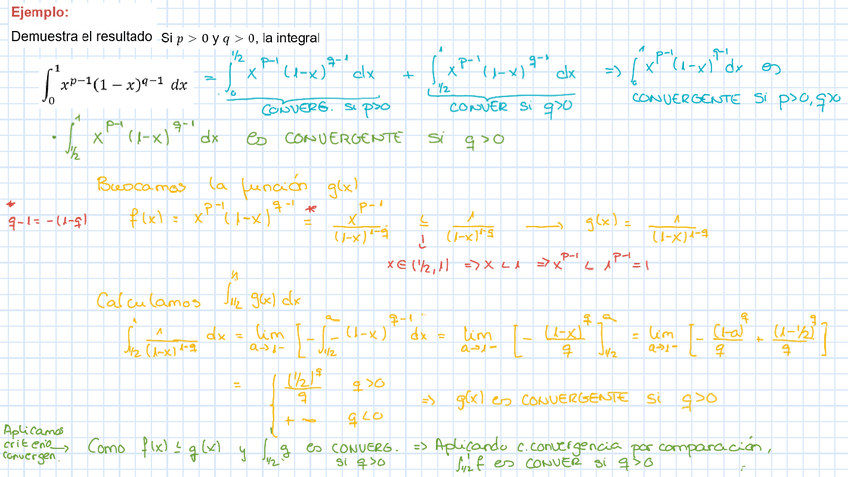 Ejemplo:
Demuestra el resultado Si p > 0 y q > 0, la integral
∫₀¹ x^{p-1}(1 − x)^{q-1} dx = ∫₀^{1/2} x^{p-1}(1-x)^{q-1} dx + ∫_{1/2}^1 x^{p-1}(1-x)^{q-1} dx => ∫₀¹ x^{p-1}(1-x)^{q-1} dx es
CONVERG. si p>0 CONVER si q>0 CONVERGENTE si p>0, q>0
• ∫_{1/2}^1 x^{p-1}(1-x)^{q-1} dx es CONVERGENTE si q>0
Buscamos la función g(x)
* q-1 = -(1-q) f(x) = x^{p-1}(1-x)^{q-1} =* x^{p-1}/(1-x)^{1-q} ≤ 1/(1-x)^{1-q} → g(x) = 1/(1-x)^{1-q}
x∈(1/2,1) => x<1 => x^{p-1} < 1^{p-1} = 1
Calculamos ∫_{1/2}^1 g(x) dx
∫_{1/2}^1 1/(1-x)^{1-q} dx = lim_{a→1-} [-∫_{1/2}^a -(1-x)^{q-1} dx = lim_{a→1-} [-(1-x)^q/q]_{1/2}^a = lim_{a→1-} [-(1-a)^q/q + (1-1/2)^q/q]
= { (1/2)^q/q q>0
+∞ q<0 => g(x) es CONVERGENTE si q>0
Aplicamos criterio convergen. → Como f(x) ≤ g(x) y ∫_{1/2}^1 g es CONVERG. si q>0 => Aplicando c.convergencia por comparación,
∫_{1/2}^1 f es CONVER si q>0